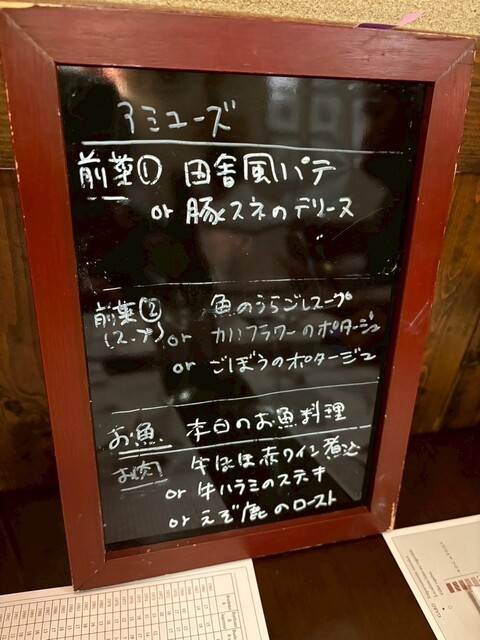 アミューズ
前菜① 田舎風パテ
or 豚スネのテリーヌ
前菜② 魚のうらごしスープ
(スープ) or カリフラワーのポタージュ
or ごぼうのポタージュ
お魚 本日のお魚料理
お肉 牛ほほ赤ワイン煮込
or 牛ハラミのステキ
or えぞ鹿のロースト